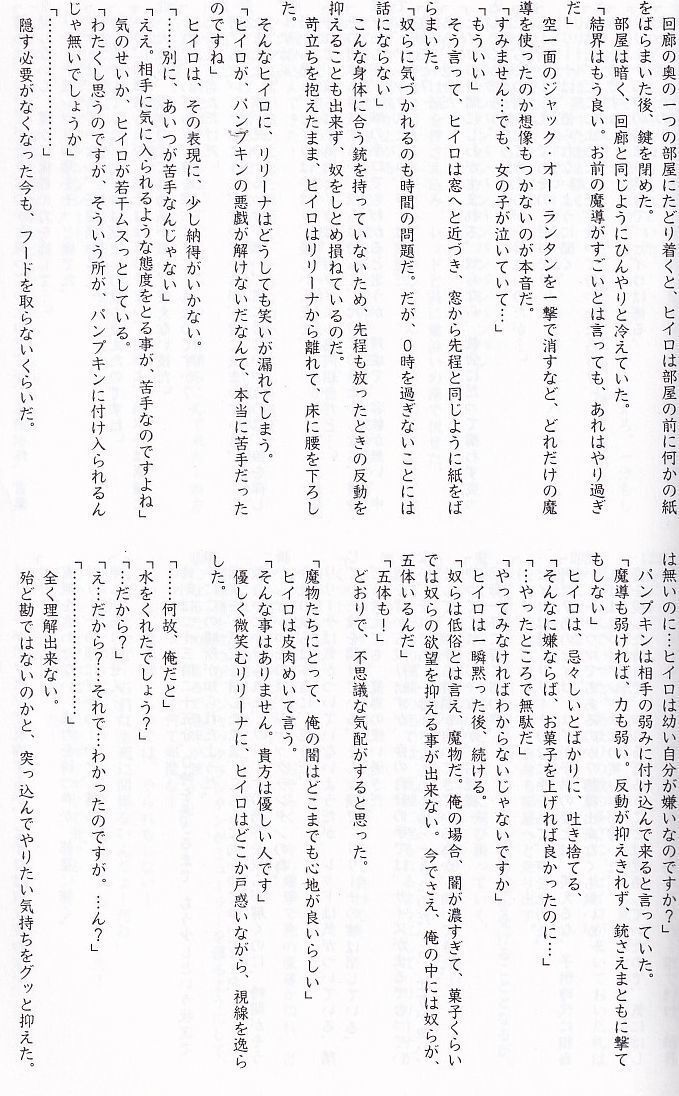 回廊の奥の一つの部屋にたどり着くと、ヒイロは部屋の前に何かの紙
をばらまいた後、鍵を閉めた。
部屋は暗く、回廊と同じようにひんやりと冷えていた。
「結界はもう良い。お前の魔導がすごいとは言っても、あれはやり過ぎ
だ」
空一面のジャック・オー・ランタンを一撃で消すなど、どれだけの魔
導を使ったのか想像もつかないのが本音だ。
「すみません…でも、女の子が泣いていて…」
「もういい」
そう言って、ヒイロは窓へと近づき、窓から先程と同じように紙をば
らまいた。
「奴らに気づかれるのも時間の問題だ。だが、０時を過ぎないことには
話にならない」
こんな身体に合う銃を持っていないため、先程も放ったときの反動を
抑えることも出来ず、奴をしとめ損ねているのだ。
苛立ちを抱えたまま、ヒイロはリリーナから離れて、床に腰を下ろし
た。
そんなヒイロに、リリーナはどうしても笑いが漏れてしまう。
「ヒイロが、パンプキンの悪戯が解けないだなんて、本当に苦手だった
のですね」
ヒイロは、その表現に、少し納得がいかない。
「……別に、あいつが苦手なんじゃない」
「ええ。相手に気に入られるような態度をとる事が、苦手なのですよね」
気のせいか、ヒイロが若干ムスっとしている。
「わたくし思うのですが、そういう所が、パンプキンに付け入られるん
じゃ無いでしょうか」
「…………………」
隠す必要がなくなった今も、フードを取らないくらいだ。
は無いのに…ヒイロは幼い自分が嫌いなのですか？」
パンプキンは相手の弱みに付け込んで来ると言っていた。
「魔導も弱ければ、力も弱い。反動が抑えきれず、銃さえまともに撃て
もしない」
ヒイロは、忌々しいとばかりに、吐き捨てる、
「そんなに嫌ならば、お菓子を上げれば良かったのに…」
「…やったところで無駄だ」
「やってみなければわからないじゃないですか」
ヒイロは一瞬黙った後、続ける。
「奴らは低俗とは言え、魔物だ。俺の場合、闇が濃すぎて、菓子くらい
では奴らの欲望を抑える事が出来ない。今でさえ、俺の中には奴らが、
五体いるんだ」
「五体も！」
どおりで、不思議な気配がすると思った。
「魔物たちにとって、俺の闇はどこまでも心地が良いらしい」
ヒイロは皮肉めいて言う。
「そんな事はありません。貴方は優しい人です」
優しく微笑むリリーナに、ヒイロはどこか戸惑いながら、視線を逸ら
した。
「……何故、俺だと」
「水をくれたでしょう？」
「…だから？」
「え…だから？…それで…わかったのですが。…ん？」
「…………………」
全く理解出来ない。
殆ど勘ではないのかと、突っ込んでやりたい気持ちをグッと抑えた。